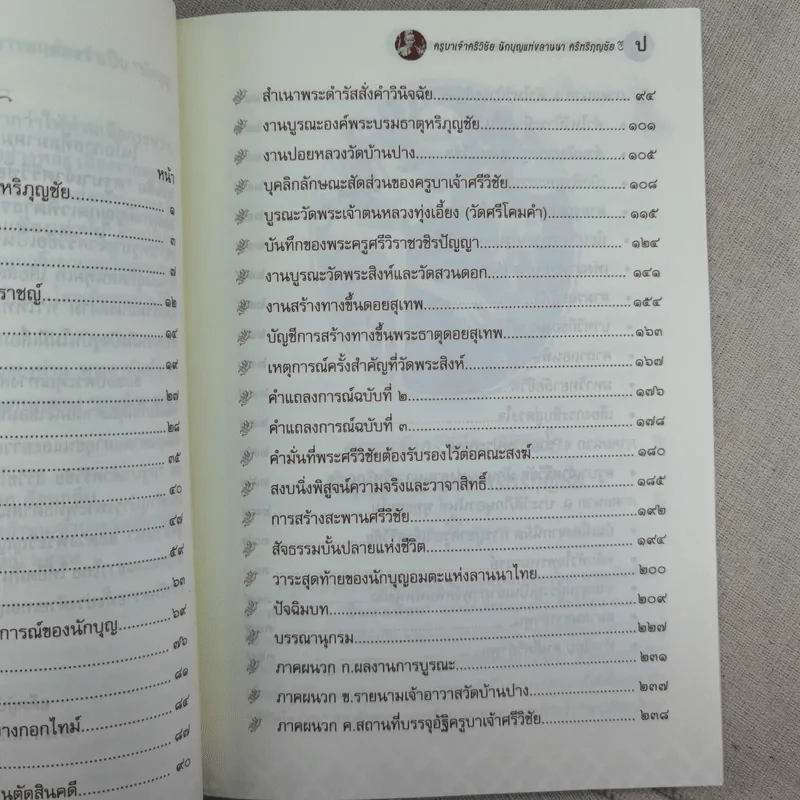 หน้า
หริภุญชัย............๑
๓
๗
ราชญ์............๑๒
๑๔
๑๙
๒๗
๒๘
๓๕
๔๐
๔๗
๕๙
๖๓
๖๙
การณ์ของนักบุญ............๗๖
๘๑
๘๔
างกอกไทม์............๘๗
๙๐
นตัดสินคดี
ครูบาเจ้าศรีวิชัย นักบุญแห่งลานนา ศรีหริภุญชัย ป
สำเนาพระดำรัสสั่งคำวินิจฉัย............๙๔
งานบูรณะองค์พระบรมธาตุหริภุญชัย............๑๐๑
งานปอยหลวงวัดบ้านปาง............๑๐๕
บุคลิกลักษณะสัดส่วนของครูบาเจ้าศรีวิชัย............๑๐๘
บูรณะวัดพระเจ้าตนหลวงทุ่งเอี้ยง (วัดศรีโคมคำ)............๑๑๕
บันทึกของพระครูศรีวิราชวชิรปัญญา............๑๒๔
งานบูรณะวัดพระสิงห์และวัดสวนดอก............๑๔๑
งานสร้างทางขึ้นดอยสุเทพ............๑๕๔
บัญชีการสร้างทางขึ้นพระธาตุดอยสุเทพ............๑๖๓
เหตุการณ์ครั้งสำคัญที่วัดพระสิงห์............๑๖๗
คำแถลงการณ์ฉบับที่ ๒............๑๗๖
คำแถลงการณ์ฉบับที่ ๓............๑๗๘
คำมั่นที่พระศรีวิชัยต้องรับรองไว้ต่อคณะสงฆ์............๑๘๐
สงบนิ่งพิสูจน์ความจริงและวาจาสิทธิ์............๑๘๕
การสร้างสะพานศรีวิชัย............๑๙๒
สัจธรรมบั้นปลายแห่งชีวิต............๑๙๔
วาระสุดท้ายของนักบุญอมตะแห่งลานนาไทย............๒๐๐
ปัจฉิมบท............๒๐๙
บรรณานุกรม............๒๒๗
ภาคผนวก ก.ผลงานการบูรณะ............๒๓๑
ภาคผนวก ข.รายนามเจ้าอาวาสวัดบ้านปาง............๒๓๗
ภาคผนวก ค.สถานที่บรรจุอัฐิครูบาเจ้าศรีวิชัย............๒๓๘